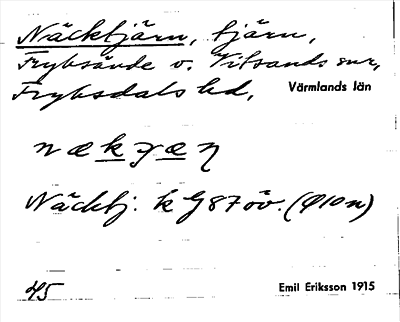 Näcktjärn, tjärn,
Frykssände v. Vitsands snr,
Fryksdals hd, Värmlands län
nækɣæŋ
Näcktj. k G87öv. (φ10n)
45 Emil Eriksson 1915